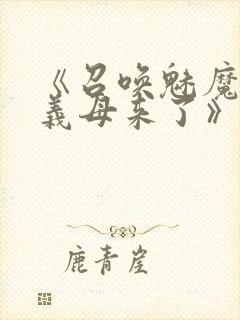 《召唤魅魔
義母来了》
鹿青崖